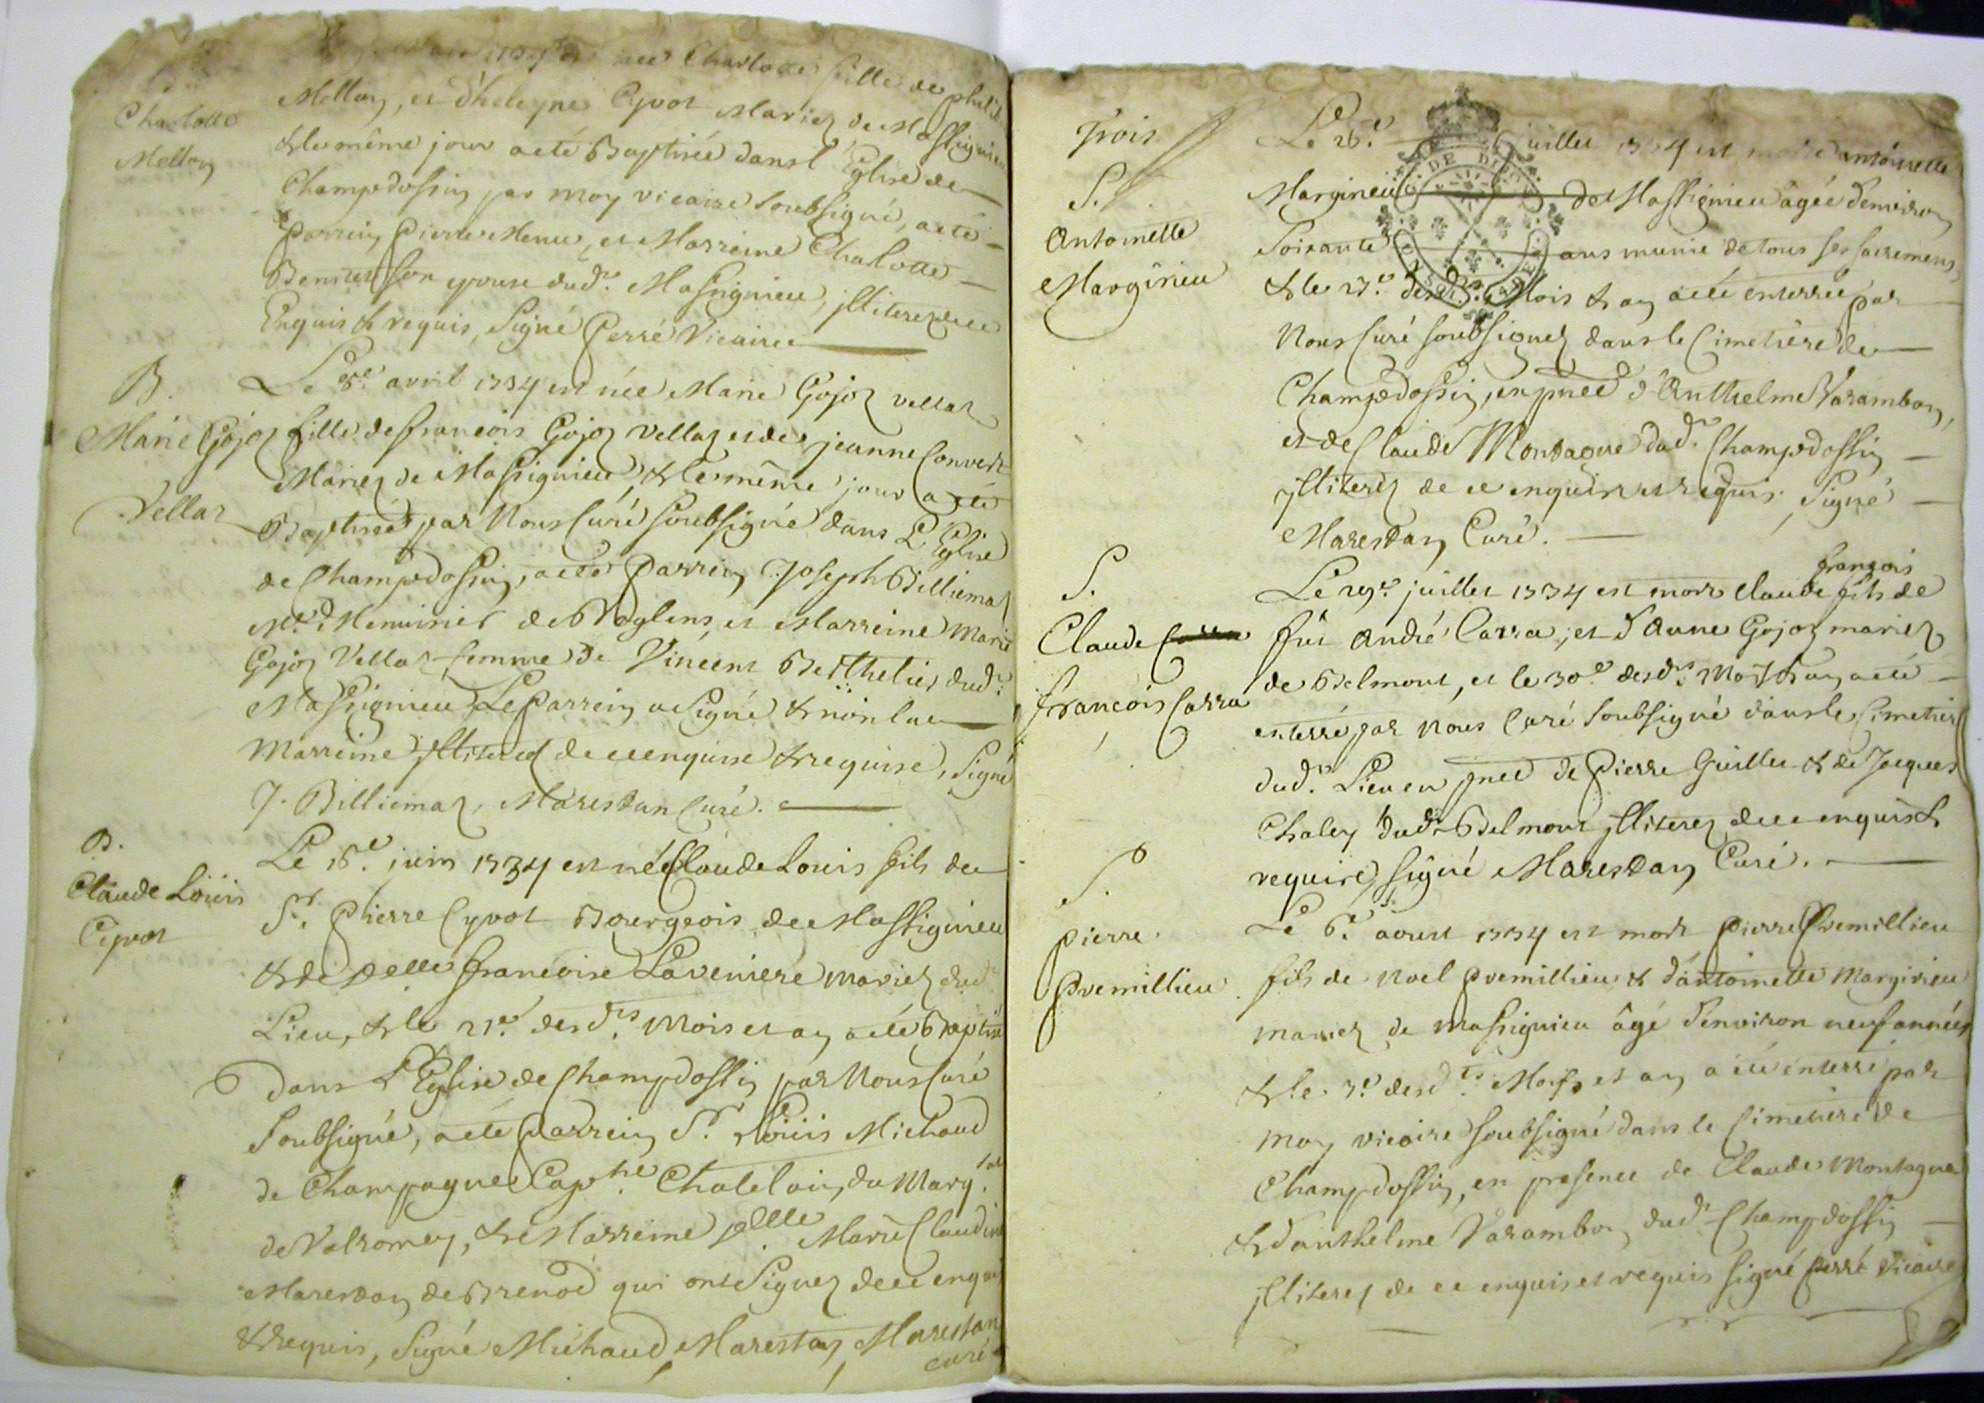 Charlotte
Mellon
née Charlotte fille de
Mellon, et d'heleyne Cyvot Mariez de Massignieu
& le même jour a eté Baptisée dans l'Eglise de
Champdossin par moy vicaire soubsigné, a eté
parrein pierre Menu, et Marreine Charlotte
son epouse dud.t Massignieu, jlliterez de ce
Enquis & requis, signé perré Vicaire
B.
Marie Gojoz
Vellaz
Le 8.e avril 1734 est née Marie Gojoz vellaz
fille de françois Gojoz vellaz et de jeanne Convert
Mariez de Massignieu, & le même jour a eté
Baptisée par Nous Curé soubsigné dans L'Eglise
de Champdossin, a eté parrein Joseph Billiemaz
M.e Menuisier de Beylens, et Marreine Marie
Gojoz Vellaz femme de Vincent Berthelier dud.t
Massignieu, Le parrein a signé & non la
Marreine jlliterée de ce enquise & requise, signé
J. Billiemaz, Marestan Curé.
B.
Claude Loüis
Cyvot
Le 18.e juin 1734 est né Claude Louis fils de
S.r pierre Cyvot Bourgeois de Massignieu
& de Delle françoise Laveniere mariez dud.t
Lieu, & le 21.e desd.ts Mois et an a eté Baptisé
dans L'Eglise de Champdossin par Nous Curé
soubsigné, a eté parrein S.r Loüis Michaud
de Champagne Cap.ne Chatelain du Marq.sat
de Valromey, & Marreine Delle Marie Claudine
Marestan de Brenod qui ont signez de ce enquis
& requis, signé Michaud, Marestan, Marestan
curé
Trois
S.
Antoinette
Margirieu
Le 26.e juillet 1734 est morte antoinette
Margirieu de Massignieu âgée d'environ
soixante ans munie de tous ses sacremens,
& le 27.e desd.ts Mois & an a eté enterrée par
Nous Curé soubsignez dans le Cimetiere de
Champdossin, en pñce d'Anthelme Varambon,
et de Claude Montagne dud.t Champdossin
jlliterez de ce enquis et requis. signé
Marestan Curé.
S.
Claude Carra
françois Carra
françois
Le 29.e juillet 1734 est mort Claude fils de
fût André Carra, et d'Anne Gojoz mariez
de Belmont, et le 30.e desd.ts Mois & an a eté
enterré par Nous Curé soubsigné dans le Cimetiere
dud.t Lieu en pñce de Pierre Guillet & de Jacques
Chaley dud.t Belmont jlliterez de ce enquis &
requis, signé Marestan Curé.
S.
pierre
Premillieu
Le 6.e aoust 1734 est mort pierre Premillieu
fils de Noel premillieu & d'antoinette Margirieu
mariez de Massignieu âgé d'environ neuf années
& le 7.e desd.ts Mois et an a eté enterré par
moy vicaire soubsigné dans le Cimetiere de
Champdossin, en presence de Claude Montagne
& d'anthelme Varambon dud.t Champdossin
jlliterez de ce enquis et requis signé perré vicaire